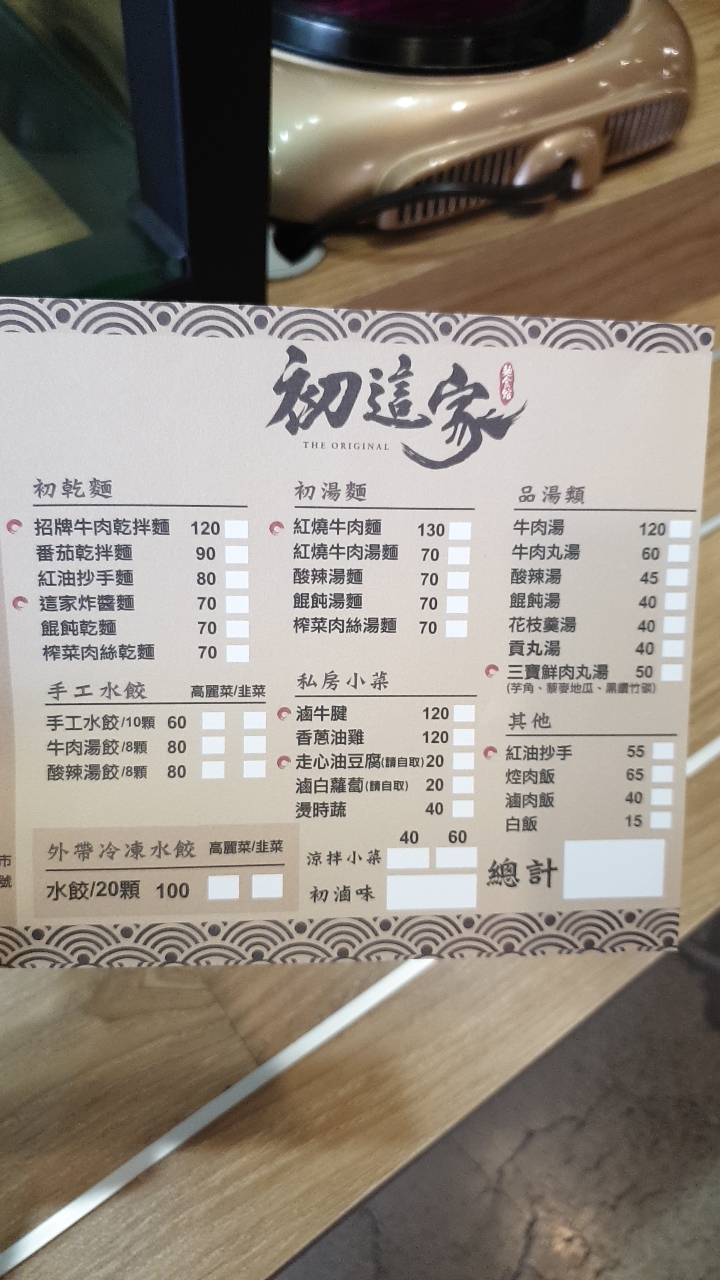 初這家
麵食館
THE ORIGINAL
初乾麵
招牌牛肉乾拌麵 120
番茄乾拌麵 90
紅油抄手麵 80
這家炸醬麵 70
餛飩乾麵 70
榨菜肉絲乾麵 70
手工水餃 高麗菜/韭菜
手工水餃/10顆 60
牛肉湯餃/8顆 80
酸辣湯餃/8顆 80
外帶冷凍水餃 高麗菜/韭菜
水餃/20顆 100
初湯麵
紅燒牛肉麵 130
紅燒牛肉湯麵 70
酸辣湯麵 70
餛飩湯麵 70
榨菜肉絲湯麵 70
私房小菜
滷牛腱 120
香蔥油雞 120
走心油豆腐(請自取) 20
滷白蘿蔔(請自取) 20
燙時蔬 40
40 60
涼拌小菜
初滷味
品湯類
牛肉湯 120
牛肉丸湯 60
酸辣湯 45
餛飩湯 40
花枝羹湯 40
貢丸湯 40
三寶鮮肉丸湯 50
(芋角、藜麥地瓜、黑鑽竹碳)
其他
紅油抄手 55
焢肉飯 65
滷肉飯 40
白飯 15
總計
市
號